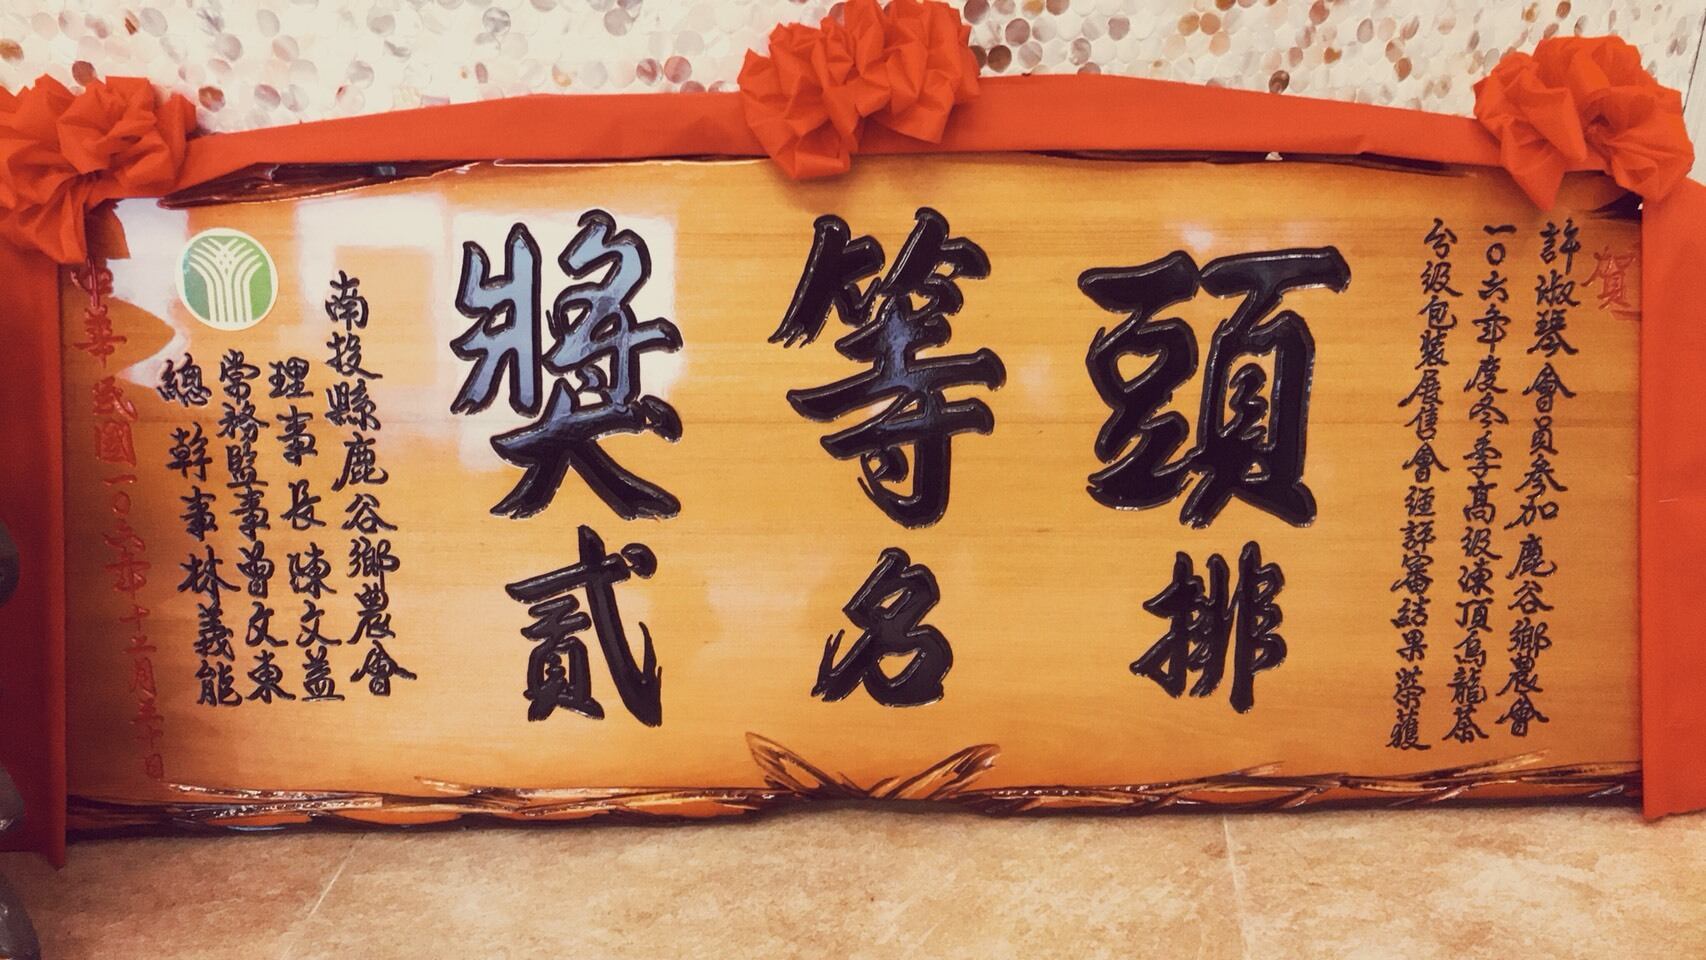 賀
許淑琴會員參加鹿谷鄉農會
一○六年度冬季高級凍頂烏龍茶
分級包裝展售會經評審結果榮獲
頭等獎
排名貳
南投縣鹿谷鄉農會
理事長陳文益
常務監事曾文東
總幹事林義能
中華民國一○六年十二月三十日